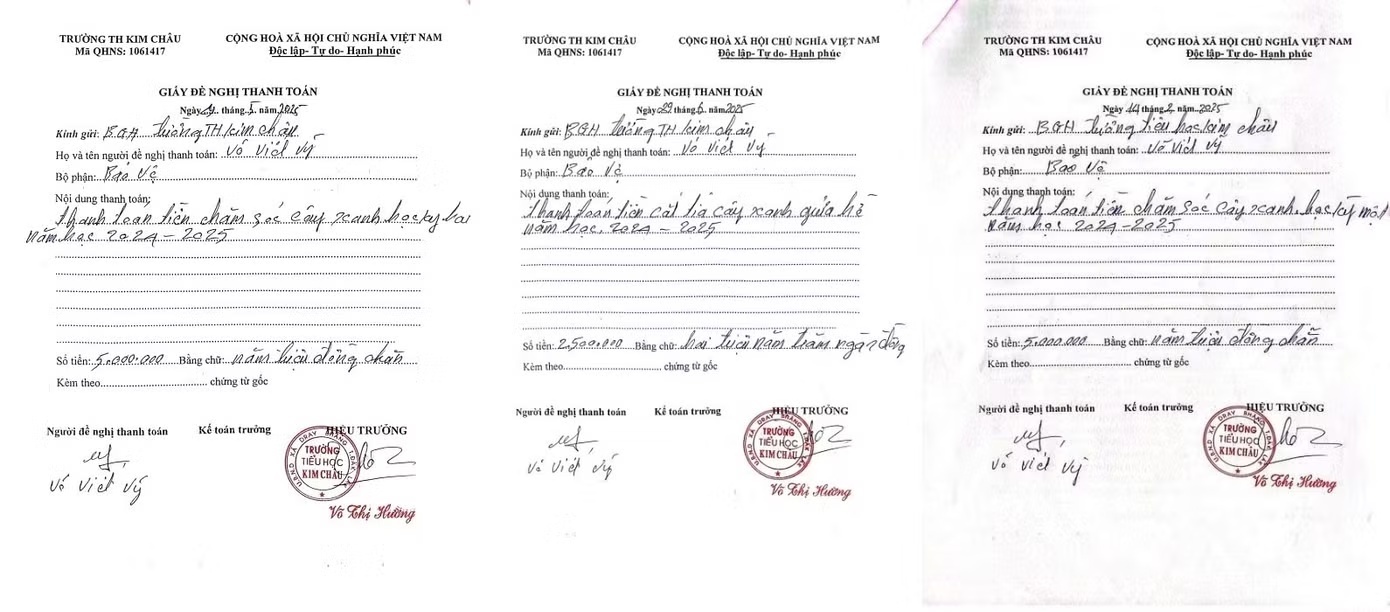 TRƯỜNG TH KIM CHÂU
Mã QHNS: 1061417
CỘNG HOÀ XÃ HỘI CHỦ NGHĨA VIỆT NAM
Độc lập- Tự do- Hạnh phúc
GIẤY ĐỀ NGHỊ THANH TOÁN
Ngày tháng 5 năm 2025
Kính gửi: BGH trường TH kim châu
Họ và tên người đề nghị thanh toán: Võ Viết Vỹ
Bộ phận: Bảo Vệ
Nội dung thanh toán:
Thanh toán tiền chăm sóc cây xanh học kỳ hai
năm học 2024 - 2025
Số tiền: 5.000.000 Bằng chữ: năm triệu đồng chẵn
Kèm theo chứng từ gốc
Người đề nghị thanh toán
Kế toán trưởng
HIỆU TRƯỞNG
U.B.N.D XÃ DRAY BHĂNG T.ĐẮK LẮK
TRƯỜNG
TIỂU HỌC
KIM CHÂU
Võ Viết Vỹ
Võ Thị Hường
TRƯỜNG TH KIM CHÂU
Mã QHNS: 1061417
CỘNG HOÀ XÃ HỘI CHỦ NGHĨA VIỆT NAM
Độc lập- Tự do- Hạnh phúc
GIẤY ĐỀ NGHỊ THANH TOÁN
Ngày 29 tháng 6 năm 2025
Kính gửi: BGH trường TH kim châu
Họ và tên người đề nghị thanh toán: Võ Viết Vỹ
Bộ phận: Bảo Vệ
Nội dung thanh toán:
Thanh toán tiền cắt tỉa cây xanh giữa hè
năm học 2024 - 2025
Số tiền: 2.500.000 Bằng chữ: hai triệu năm trăm ngàn đồng
Kèm theo chứng từ gốc
Người đề nghị thanh toán
Kế toán trưởng
HIỆU TRƯỞNG
U.B.N.D XÃ DRAY BHĂNG T.ĐẮK LẮK
TRƯỜNG
TIỂU HỌC
KIM CHÂU
Võ Viết Vỹ
Võ Thị Hường
TRƯỜNG TH KIM CHÂU
Mã QHNS: 1061417
CỘNG HOÀ XÃ HỘI CHỦ NGHĨA VIỆT NAM
Độc lập- Tự do- Hạnh phúc
GIẤY ĐỀ NGHỊ THANH TOÁN
Ngày 14 tháng 2 năm 2025
Kính gửi: BGH trường tiểu học kim châu
Họ và tên người đề nghị thanh toán: Võ Viết Vỹ
Bộ phận: Bảo Vệ
Nội dung thanh toán:
Thanh toán tiền chăm sóc cây xanh học kỳ một
năm học 2024-2025
Số tiền: 5.000.000 Bằng chữ: năm triệu đồng chẵn
Kèm theo chứng từ gốc
Người đề nghị thanh toán
Kế toán trưởng
HIỆU TRƯỞNG
U.B.N.D XÃ DRAY BHĂNG T.ĐẮK LẮK
TRƯỜNG
TIỂU HỌC
KIM CHÂU
Võ Viết Vỹ
Võ Thị Hường